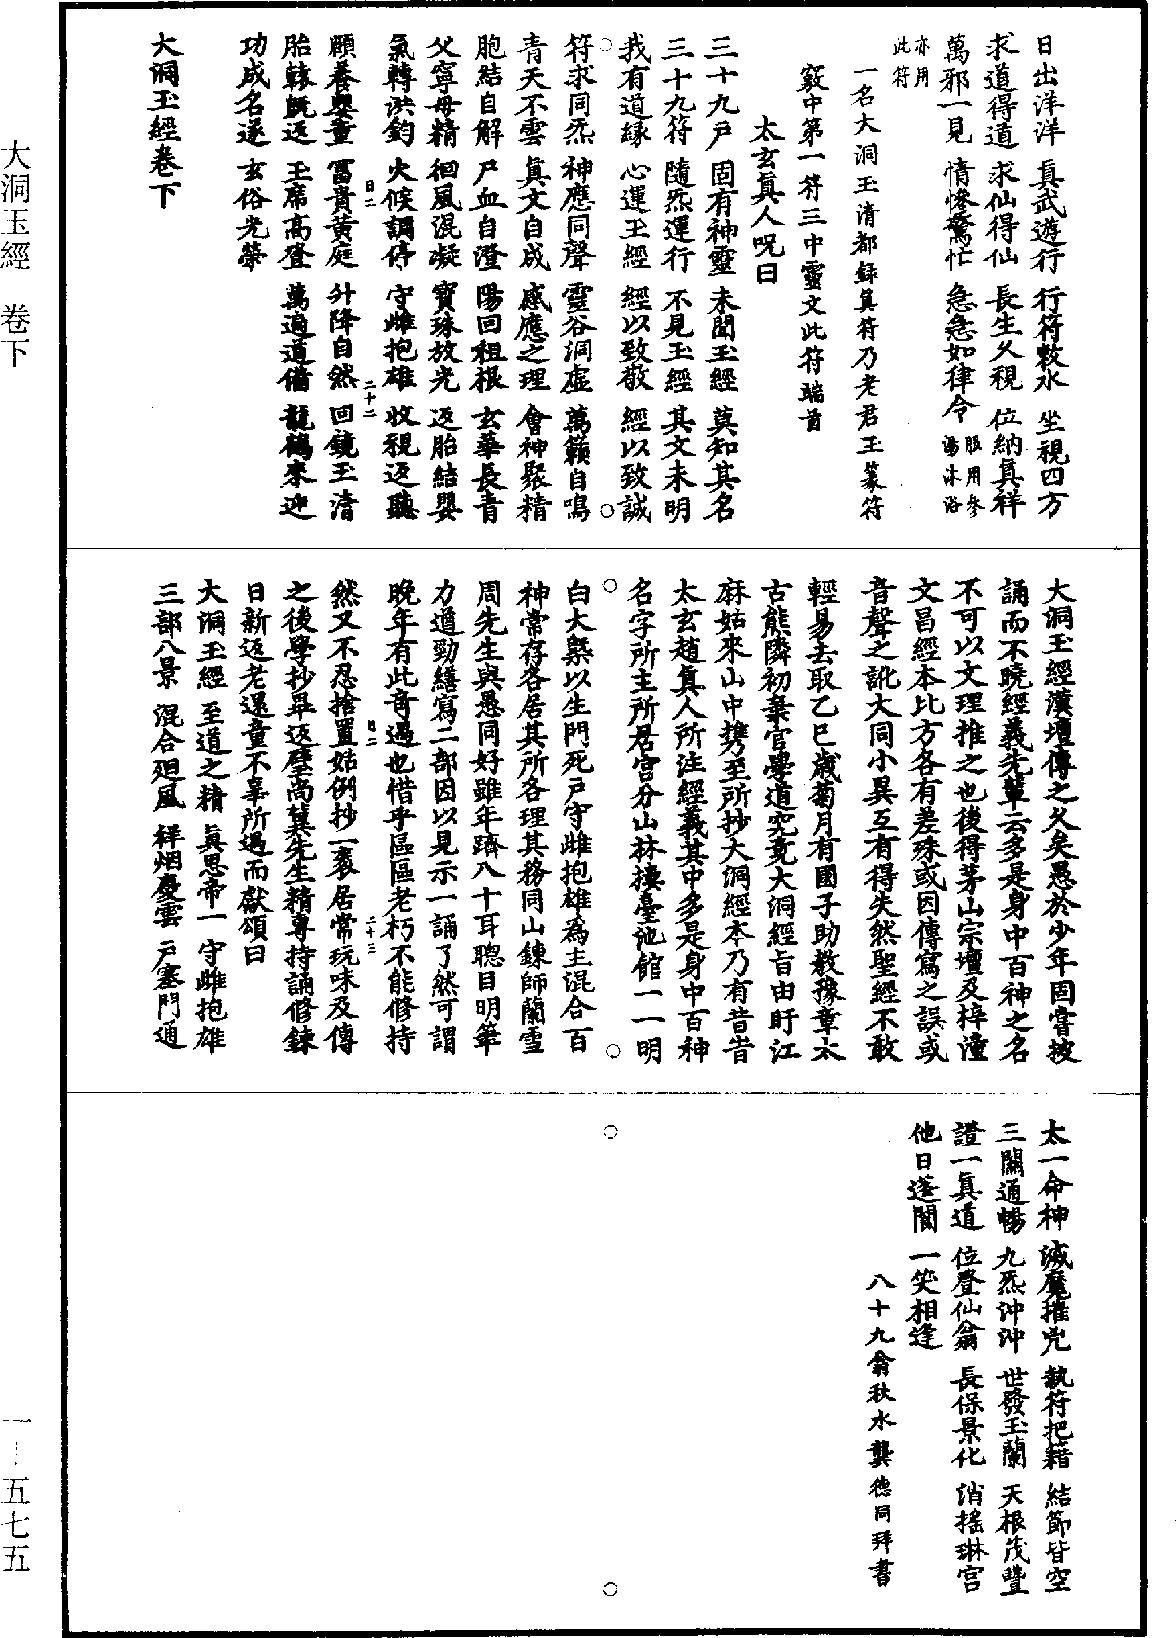 大洞玉經　卷下
一—五七五
日出洋洋　真武遊行　行符敕水　坐視四方
求道得道　求仙得仙　長生久視　位納真祥
萬邪一見　情慘驚忙　急急如律令　服用參湯沐浴
亦用此符
一名大洞玉清都錄真符乃老君玉篆符
竅中第一符三中靈文此符端首
太玄真人呪曰
三十九戶　固有神靈　未聞玉經　莫知其名
三十九符　隨炁運行　不見玉經　其文未明
我有道緣　心運玉經　經以致敬　經以致誠
符求同炁　神應同聲　靈谷洞虛　萬籟自鳴
青天不雲　真文自成　感應之理　會神聚精
胞結自解　尸血自澄　陽回祖根　玄華長青
父寧母精　徊風混凝　寶珠放光　返胎結嬰
氣轉洪鈞　火候調停　守雌抱雄　收視返聽
日二　二十二
頤養奧童　富貴黃庭　升降自然　回鏡玉清
胎轅既返　玉席高登　萬遍道備　龍鶴來迎
功成名遂　玄俗光榮
大洞玉經卷下
大洞玉經漢壇傳之久矣愚於少年固嘗披
誦而不曉經義先輩云多是身中百神之名
不可以文理推之也後得茅山宗壇及梓潼
文昌經本比方各有差殊或因傳寫之誤或
音聲之訛大同小異互有得失然聖經不敢
輕易去取乙巳歲菊月有國子助教豫章太
古熊隣初棄官學道究竟大洞經旨由盱江
麻姑來山中携至所抄大洞經本乃有昔者
太玄趙真人所注經義其中多是身中百神
名字所主所居宮分山林樓臺池館一一明
白大槩以生門死戶守雌抱雄為主混合百
神常存各居其所各理其務同山鍊師蘭雪
周先生與愚同好雖年躋八十耳聰目明筆
力遒勁繕寫二部因以見示一誦了然可謂
晚年有此奇遇也惜乎區區老朽不能修持
日二　二十三
然又不忍捨置姑例抄一袠居常玩味及傳
之後學抄畢返璧尚冀先生精專持誦修鍊
日新返老還童不辜所遇而獻頌曰
大洞玉經　至道之精　真思帝一　守雌抱雄
三部八景　混合廻風　祥烟慶雲　戶塞門通
太一命神　滅魔摧兇　執符把籍　結節皆空
三關通暢　九炁沖沖　世發玉蘭　天根茂豐
證一真道　位登仙翁　長保景化　消搖琳宮
他日蓬閬　一笑相逢
八十九翁秋水龔德同拜書